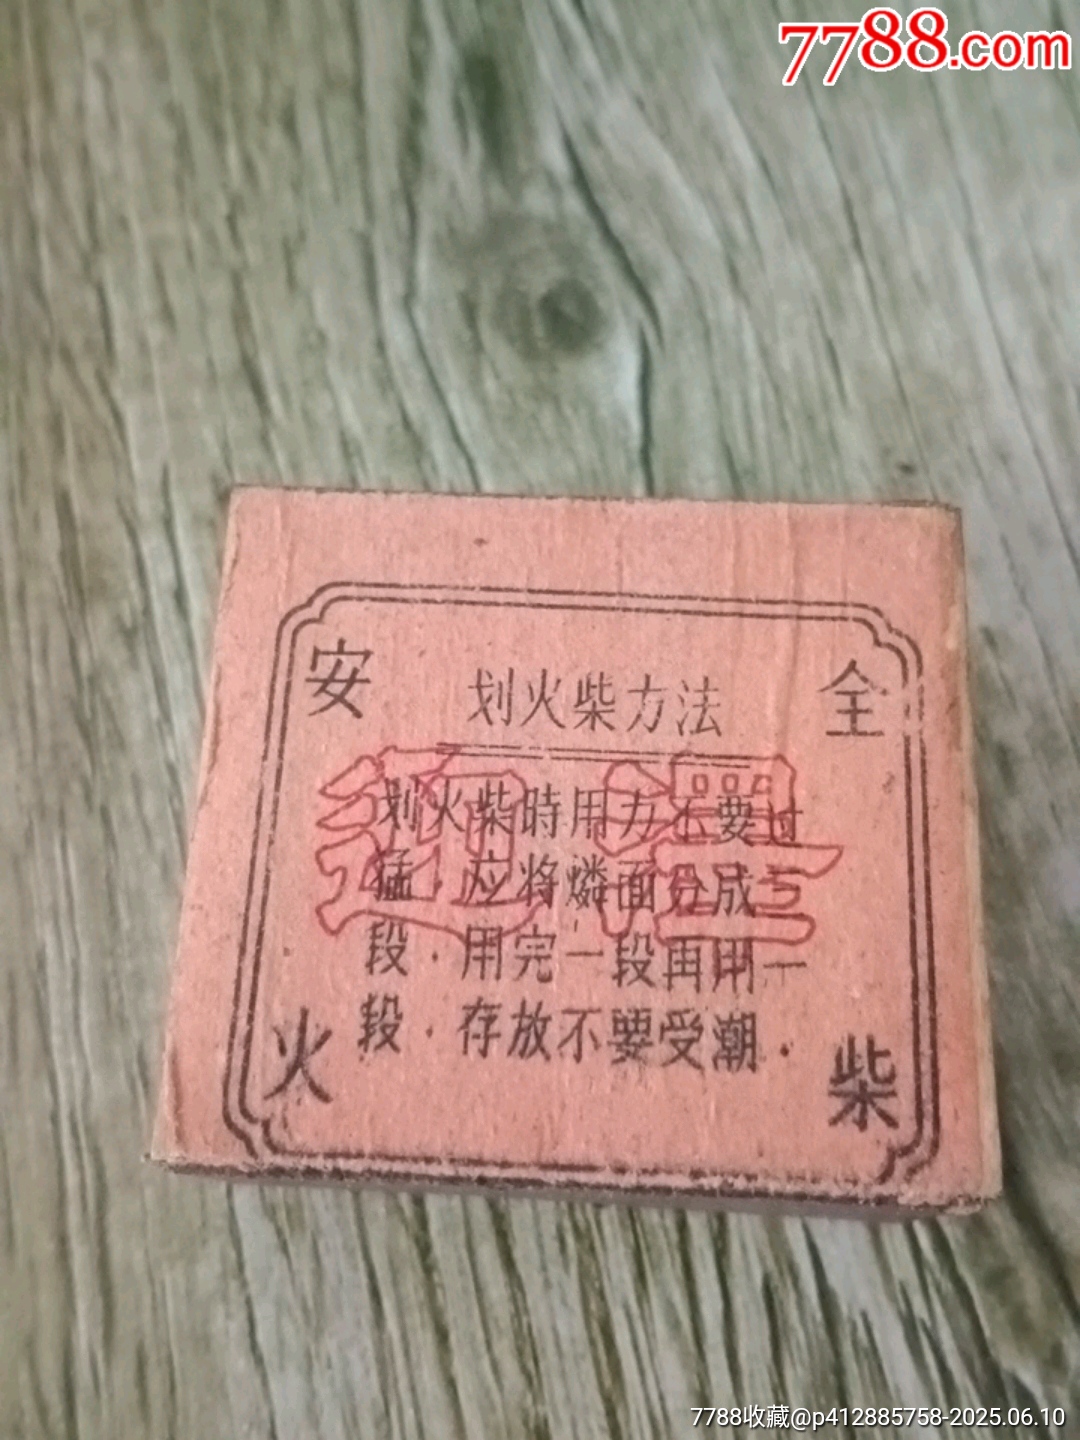 7788.com
安 全
划火柴方法
划火柴時用力不要过
猛．应将燐面分成一
段．用完一段再用一
段．存放不要受潮．
火 柴
7788收藏@p412885758-2025.06.10